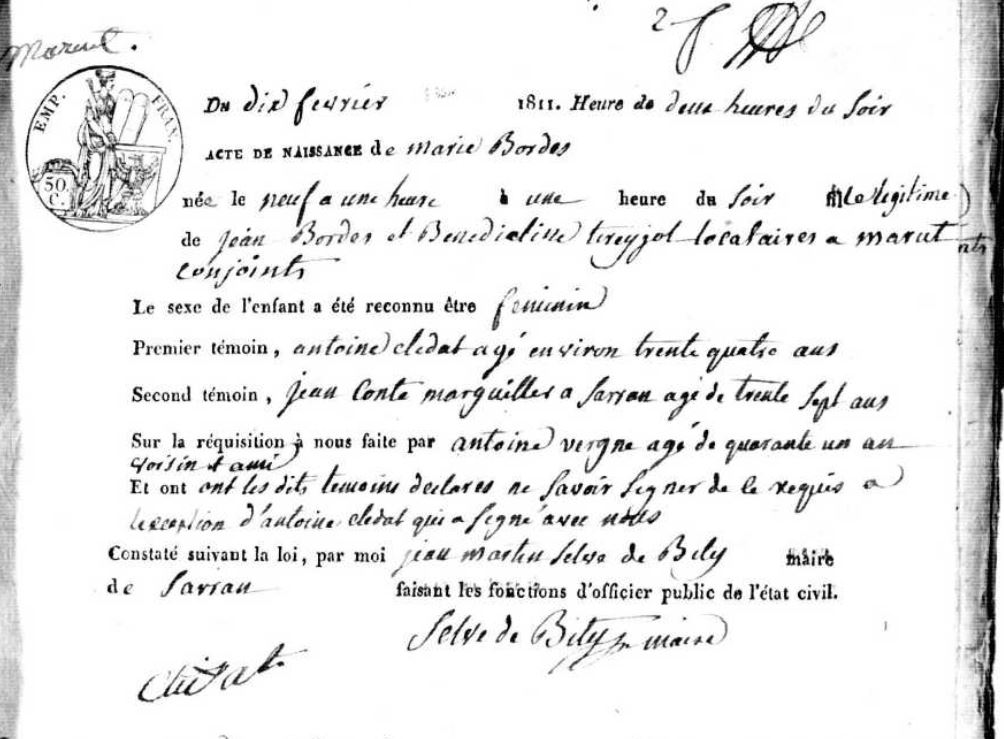 marut.
2
EMP. FRAN.
50
C.
Du dix fevrier 1811. Heure de deux heures du soir
ACTE DE NAISSANCE de marie Bordes
née le neuf a une heure à une heure du soir fille legitime
de jean Bordes et Benedictine treyjol locataires a marut
conjoints
Le sexe de l'enfant a été reconnu être feminin
Premier témoin, antoine cledat agé environ trente quatre ans
Second témoin, jean Conte marguiller a sarran agé de trente sept ans
Sur la réquisition à nous faite par antoine vergne agé de quarante un an
voisin & ami
Et ont ont les dits temoins declares ne savoir signer de ce requis a
lexception d'antoine cledat qui a signé avec nous
Constaté suivant la loi, par moi jean martin Selve de Bity maire
de Sarran faisant les fonctions d'officier public de l'état civil.
Selve de Bity maire
Cledat